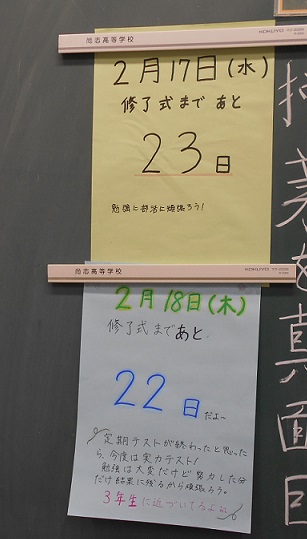 尚志高等学校
KOKUYO
2月17日(水)
修了式まで あと
23日
勉強に部活に頑張ろう!
尚志高等学校
KOKUYO
2月18日(木)
修了式まで あと
22日だよ～
定期テストが終わったと思った
ら、今度は実力テスト!
勉強は大変だけど努力した分
だけ結果に残るから頑張ろう。
3年生に近づいてるよ
授業を真面目